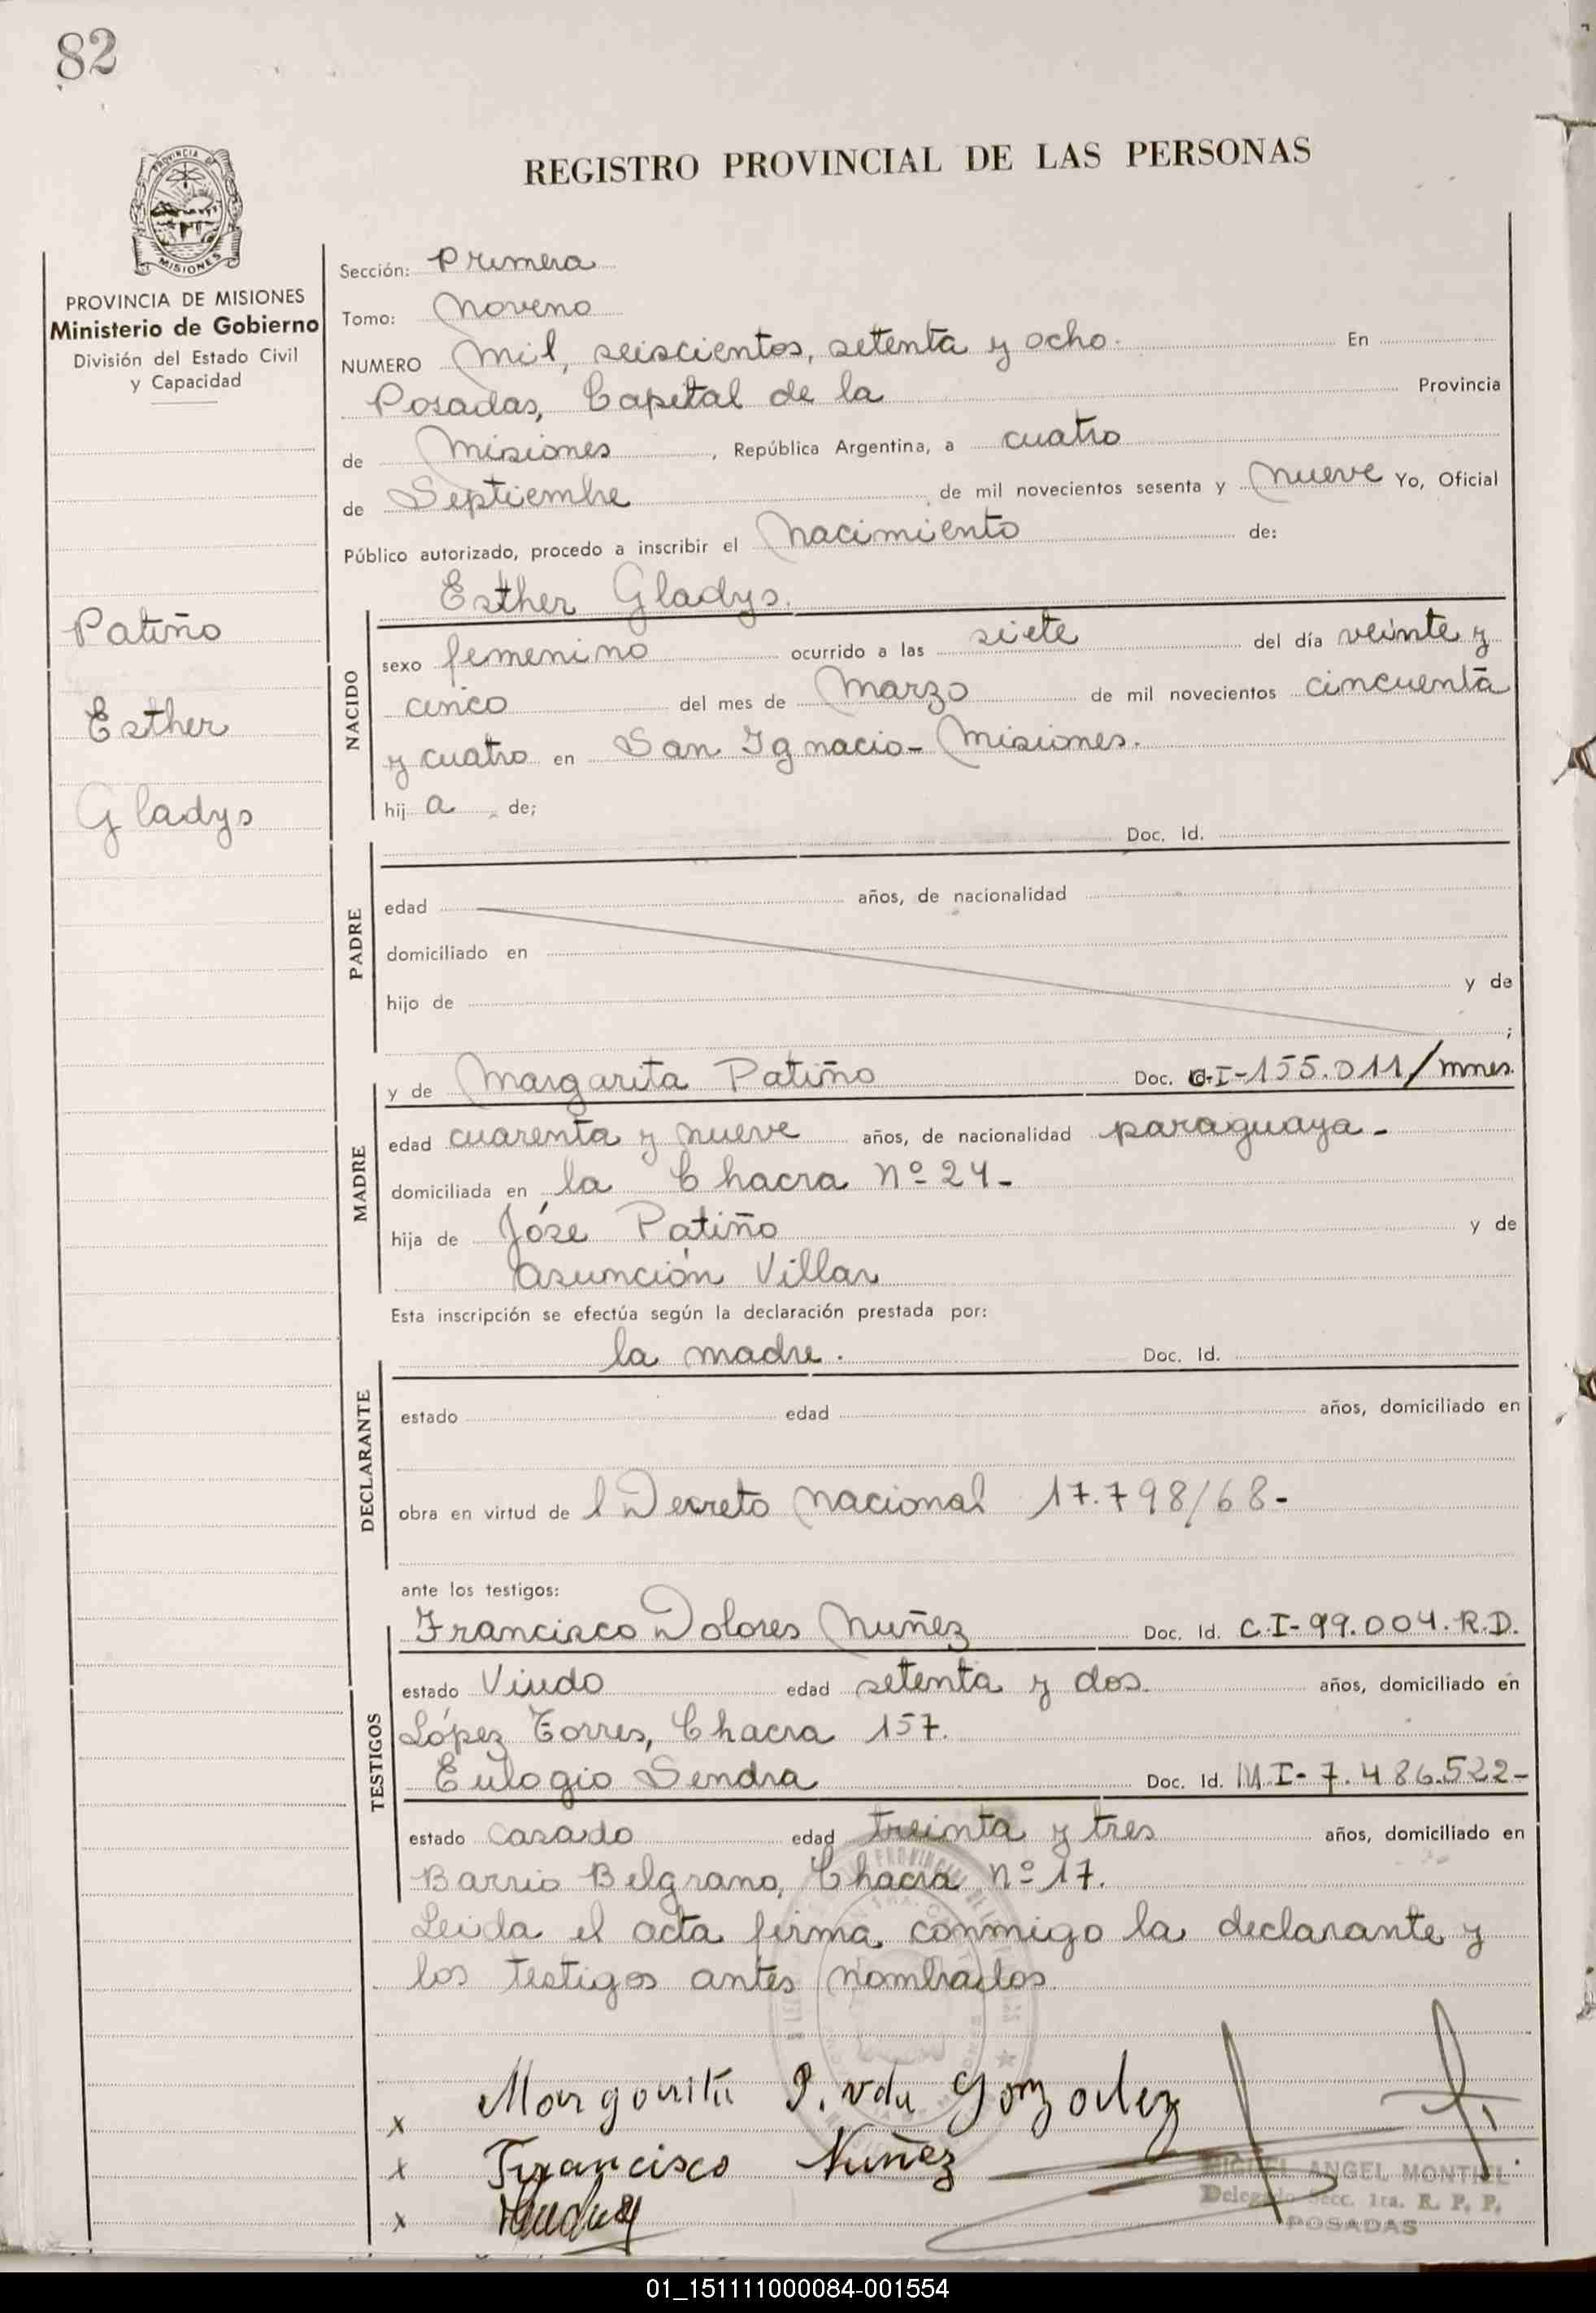 82
REGISTRO PROVINCIAL DE LAS PERSONAS
PROVINCIA DE
MISIONES
PROVINCIA DE MISIONES
Ministerio de Gobierno
División del Estado Civil
y Capacidad
Patiño
Esther
Gladys
Sección: Primera
Tomo: Noveno
NUMERO Mil, seiscientos, setenta y ocho. En
Posadas, Capital de la Provincia
de Misiones, República Argentina, a cuatro
de Septiembre de mil novecientos sesenta y Nueve Yo, Oficial
Público autorizado, procedo a inscribir el Nacimiento de:
Esther Gladys.
NACIDO
sexo femenino ocurrido a las siete del día veinte y
cinco del mes de Marzo de mil novecientos cincuenta
y cuatro en San Ignacio - Misiones.
hij a de;
Doc. Id.
PADRE
edad años, de nacionalidad
domiciliado en
hijo de y de
;
MADRE
y de Margarita Patiño Doc. C.I-155.011/mnes.
edad cuarenta y nueve años, de nacionalidad paraguaya-
domiciliada en la Chacra Nº 24-
hija de Jóse Patiño y de
Asunción Villar
Esta inscripción se efectúa según la declaración prestada por:
la madre. Doc. Id.
DECLARANTE
estado edad años, domiciliado en
obra en virtud de l Decreto Nacional 17.798/68-
ante los testigos:
TESTIGOS
Francisco Dolores Nuñez Doc. Id. C.I-99.004.R.D.
estado Viudo edad setenta y dos. años, domiciliado en
López Torres, Chacra 157.
Eulogio Sendra Doc. Id. M.I-7.486.522-
estado casado edad treinta y tres años, domiciliado en
Barrio Belgrano, Chacra Nº 17.
Leida el acta firma conmigo la declarante y
los testigos antes nombrados
x Margarita P. vda Gonzalez
x Francisco Nuñez
x
MIGUEL ANGEL MONTIEL
Delegado Secc. 1ra. R. P. P.
POSADAS
01_151111000084-001554